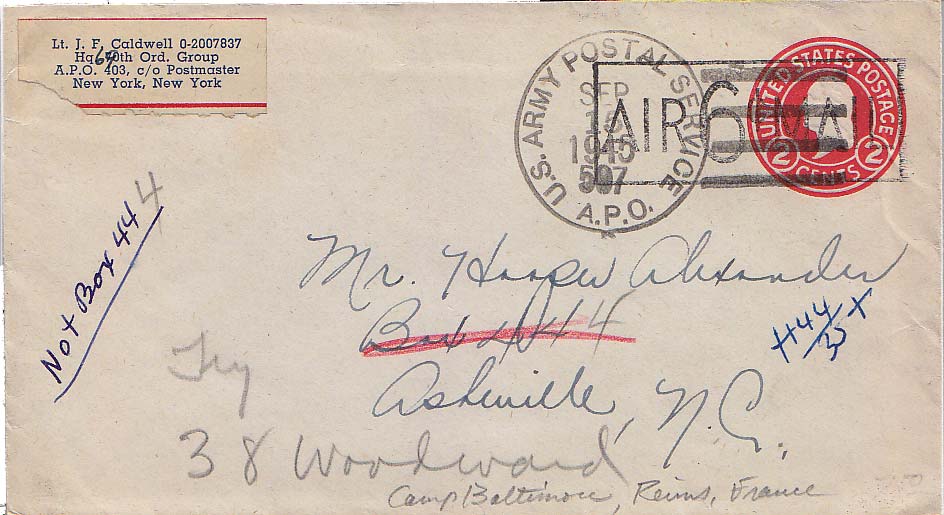 Lt. J. F. Caldwell 0-2007837
Hq 6 0th Ord. Group
A.P.O. 403, c/o Postmaster
New York, New York
U.S. ARMY POSTAL SERVICE
SEP
15
1945
507
A.P.O.
AIR 6¢ MAIL
UNITED STATES POSTAGE
2 CENTS 2
Not Box 444
Mr. Hooper Alexander
Box 444
Asheville, N.C.
444
X
Try
38 Woodward
Camp Baltimore, Reims, France